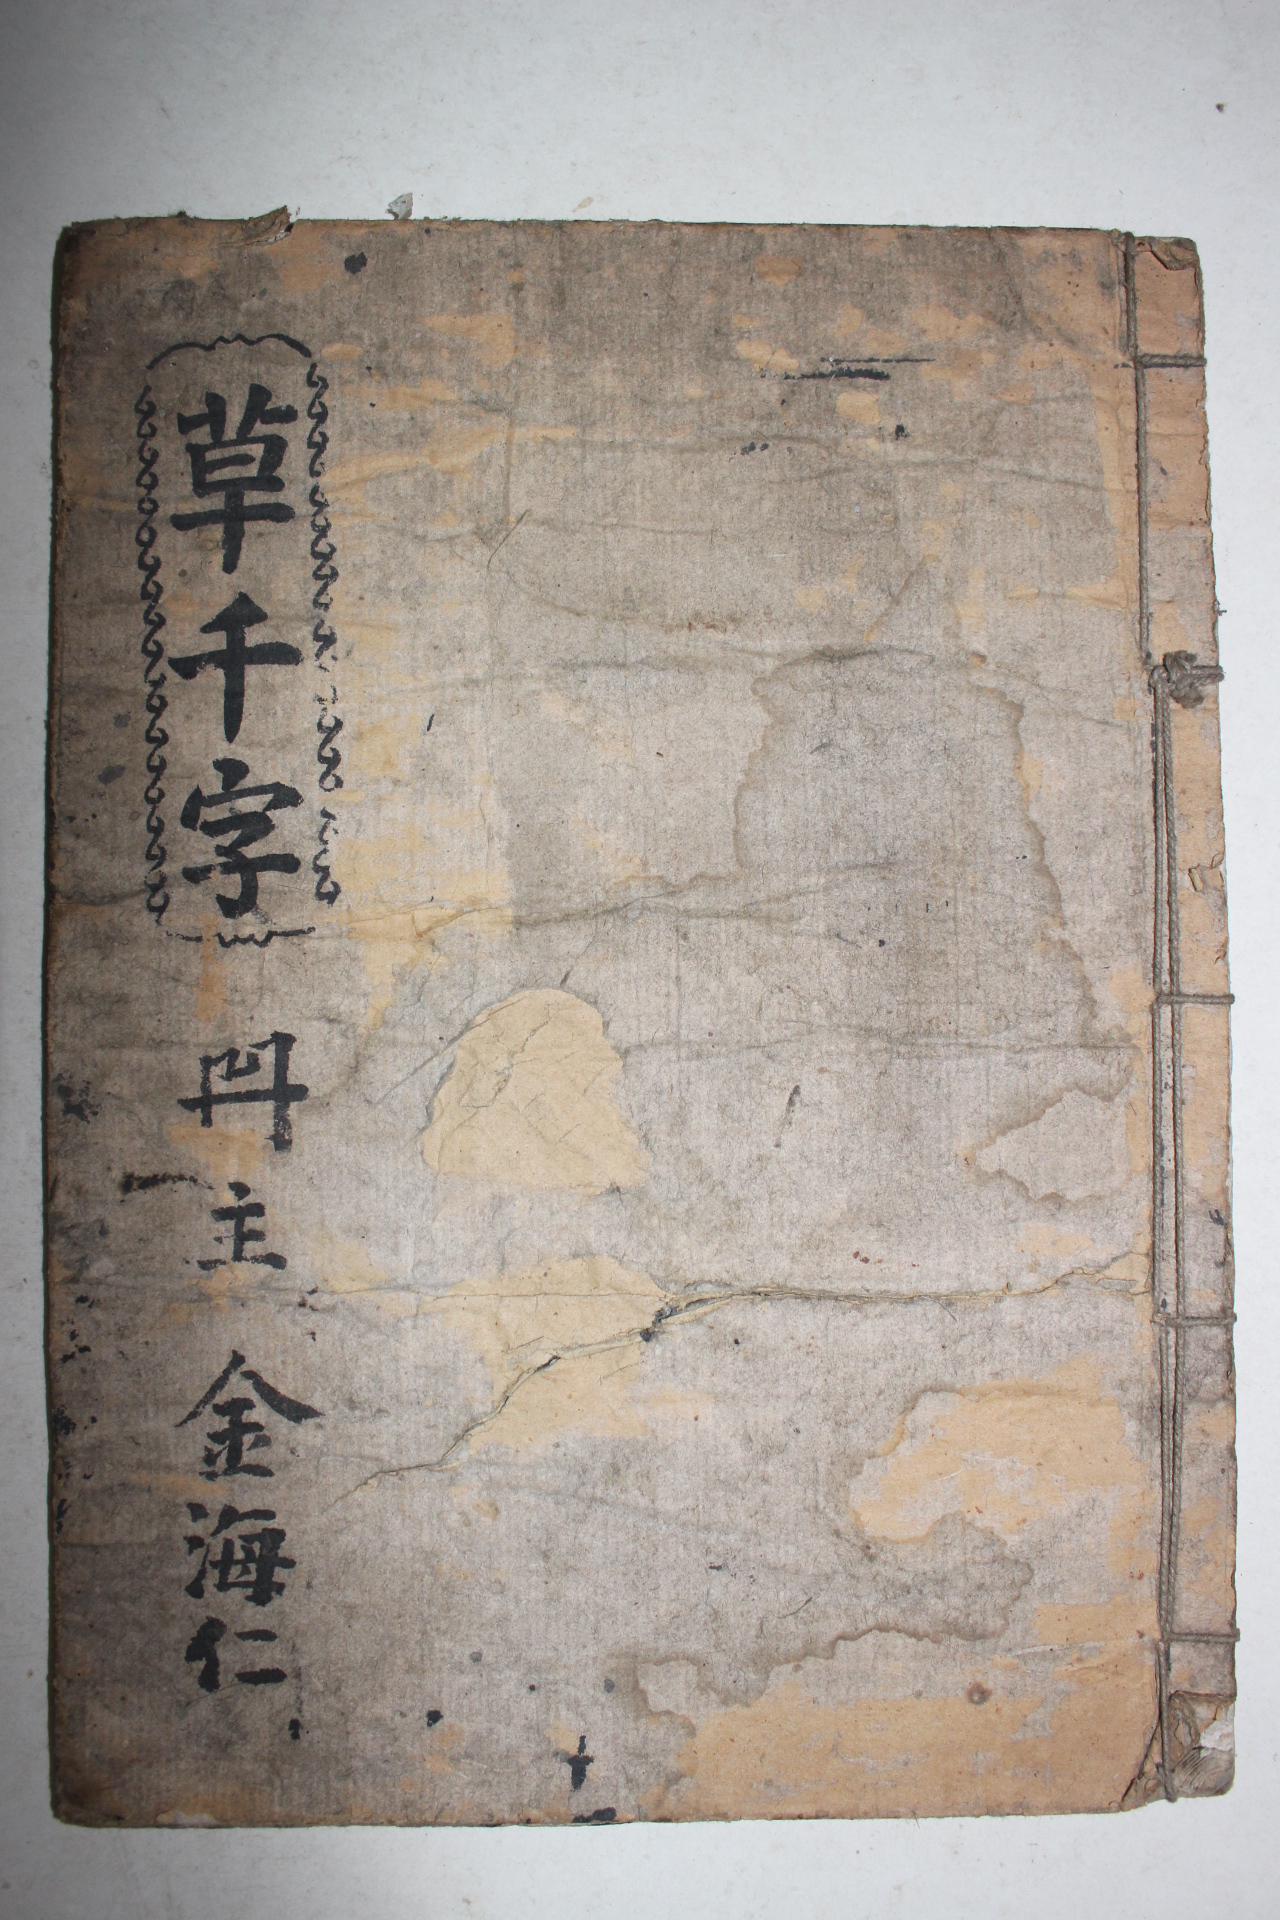 草千字 冊主 金海仁